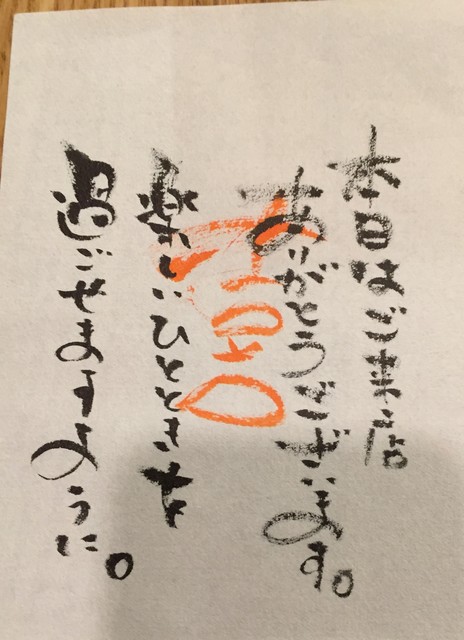 本日はご来店
ありがとうございます。
楽しいひとときを
過ごせますように。